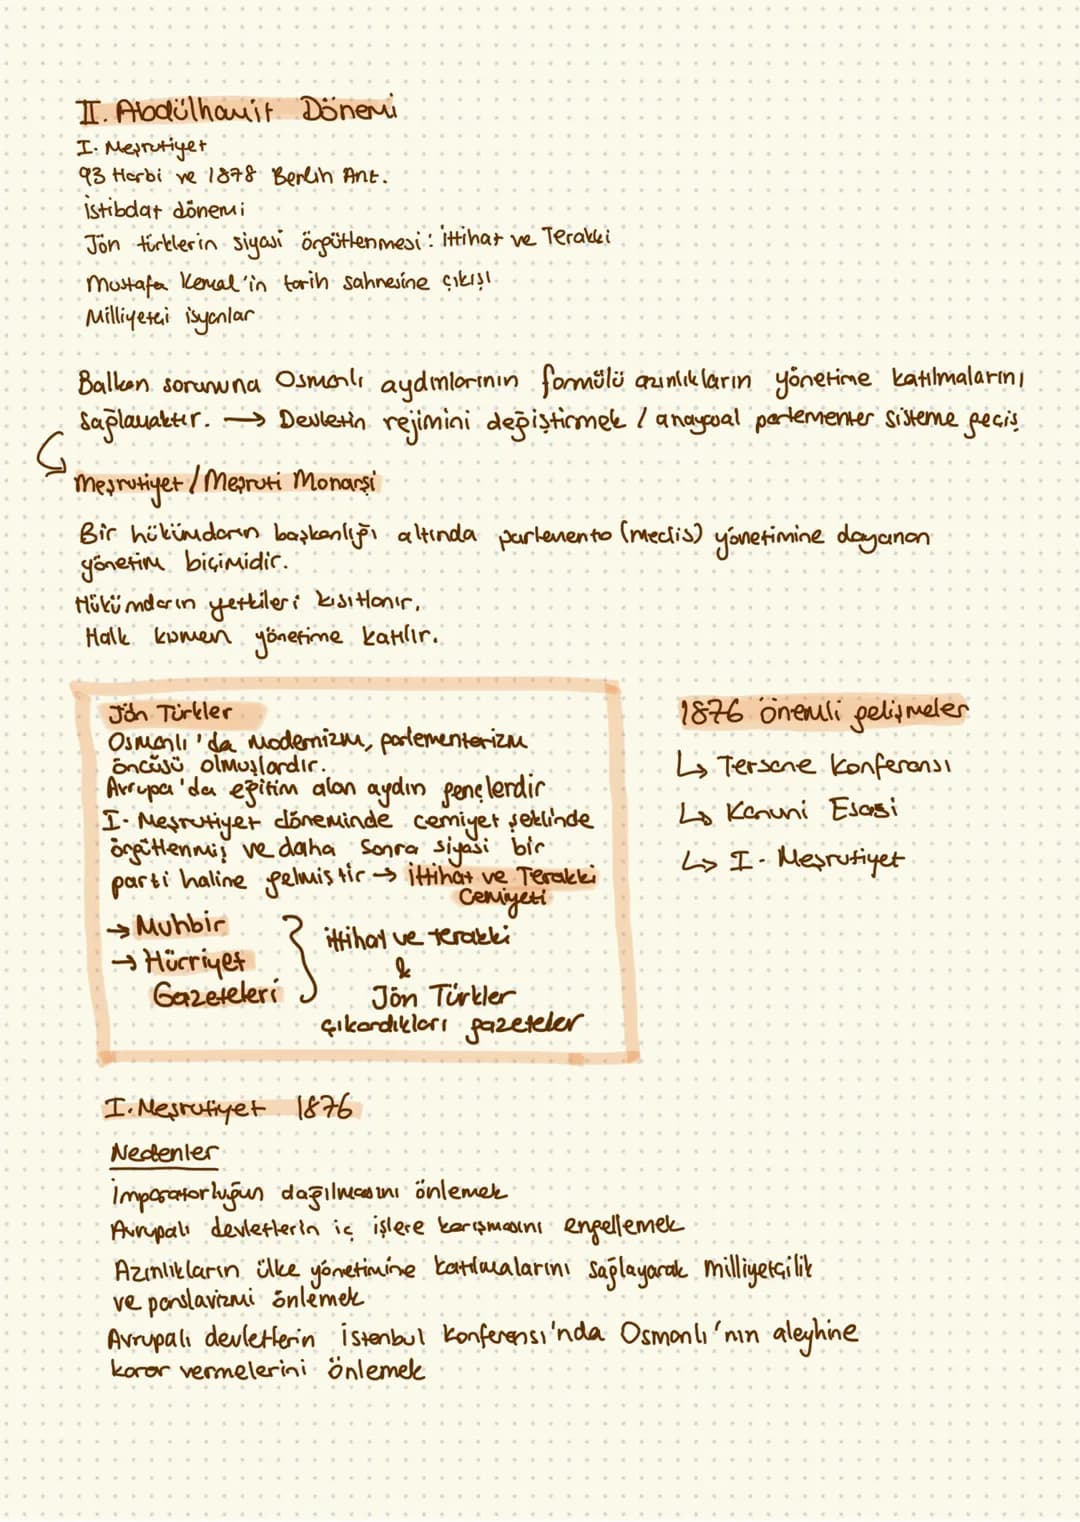 II. Abdülhamit Dönemi
I. Meşrutiyet
93 Harbi ve 1878 Berlin Ant.
istibdat dönemi
Jön türklerin siyasi örgütlenmesi: ittihat ve Terakki
Mustafa Kemal'in tarih sahnesine çıkışı
Milliyetçi isyanlar
Balkan sorununa Osmanlı aydınlarının formülü azınlıkların yönetime katılmalarını
sağlamaktır. → Devletin rejimini değiştirmek / anayasal parlementer sisteme geçiş
Meşrutiyet / Meşruti Monarşi
Bir hükümdarın başkanlığı altında parlemento (meclis) yönetimine dayanan
yönetim biçimidir.
Hükümdarın yetkileri kısıtlanır.
Halk kısmen yönetime katılır.
Jön Türkler
Osmanlı'da modernizm, parlementerizm
öncüsü olmuşlardır.
Avrupa'da eğitim alan aydın gençlerdir
I. Meşrutiyet döneminde cemiyet şeklinde
örgütlenmiş ve daha sonra siyasi bir
parti haline gelmiştir → ittihat ve Terakki
Cemiyeti
→ Muhbir
→ Hürriyet
Gazeteleri
ittihat ve terakki
&
Jön Türkler
çıkardıkları gazeteler
1876 önemli gelişmeler
↳ Tersane Konferansı
↳ Kanuni Esasi
↳ I. Meşrutiyet
I. Meşrutiyet 1876
Nedenler
imparatorluğun dağılmasını önlemek
Avrupalı devletlerin iç işlere karışmasını engellemek
Azınlıkların ülke yönetimine katılmalarını sağlayarak milliyetçilik
ve panslavizmi önlemek
Avrupalı devletlerin istanbul konferansı'nda Osmanlı'nın aleyhine
karar vermelerini önlemek